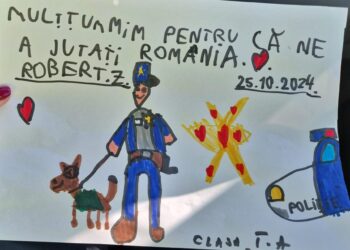 MULȚUMIM PENTRU CĂ NE
A JUTAȚI ROMÂNIA.
ROBERT.Z.
25.10.2024
POLIȚIE
CLASA. I.A